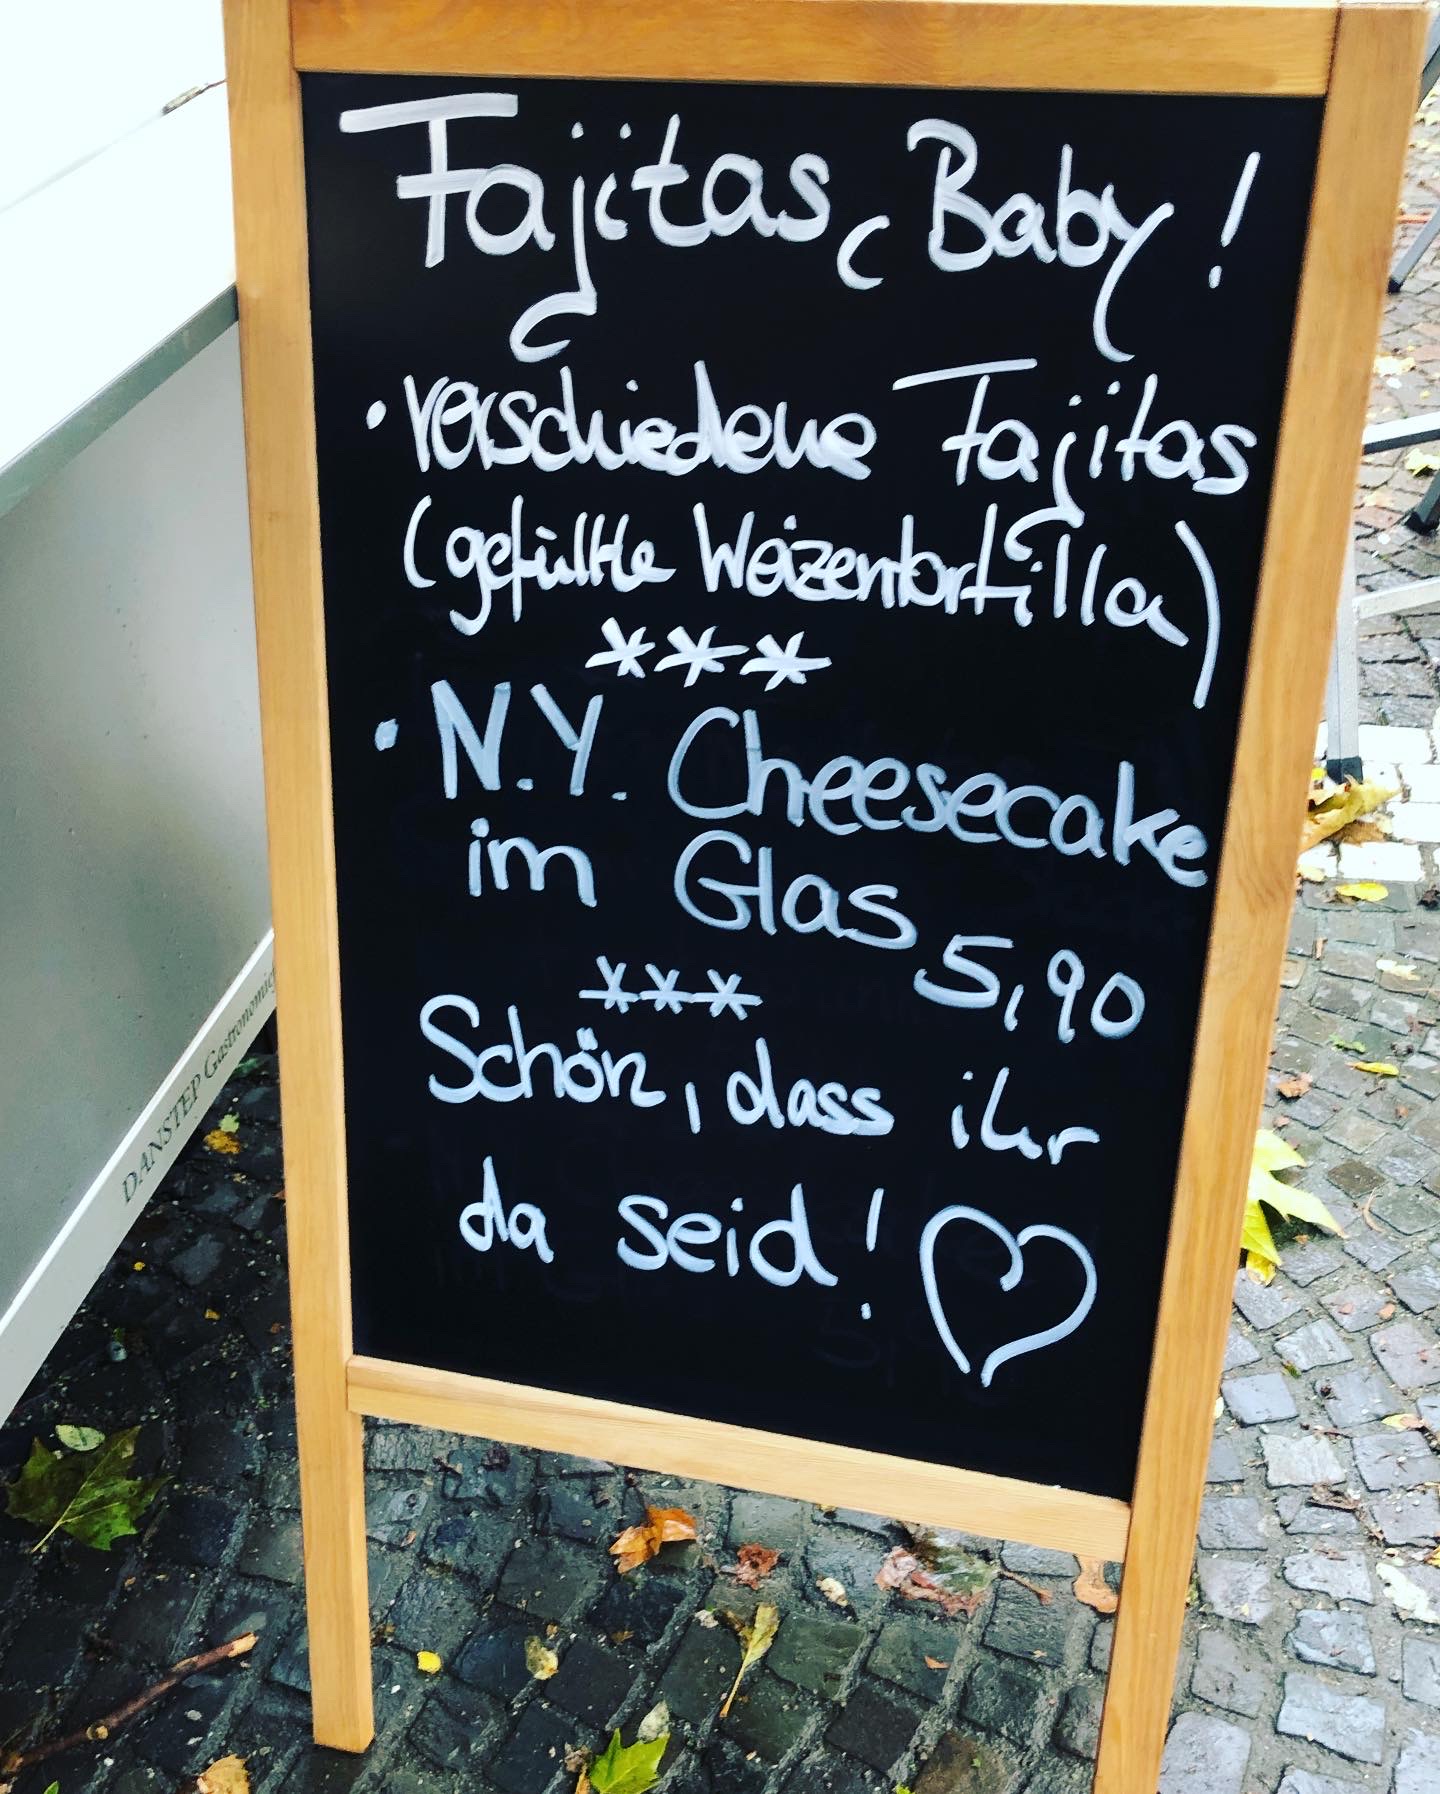 Fajitas, Baby!
• verschiedene Fajitas
(gefüllte Weizentortilla)
***
• N.Y. Cheesecake
im Glas 5,90
***
Schön, dass ihr
da seid! ♡
DANSTEP Gastronomie